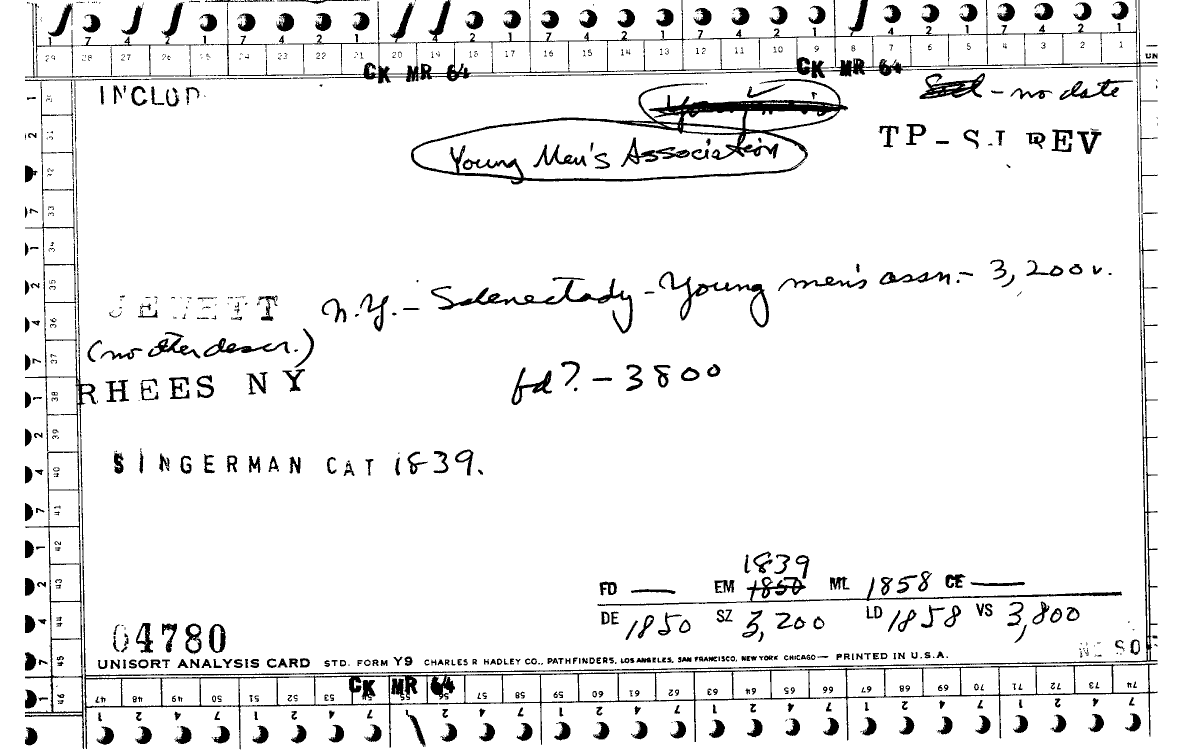 29 28 27 26 25 24 23 22 21 20 19 18 17 16 15 14 13 12 11 10 9 8 7 6 5 4 3 2 1
CK MR 64 CK MR 64
INCLUD
Young Men's
- no date
TP-SJ REV
Young Men's Association
JEWETT N.Y. - Schenectady - Young men's assn. - 3,200 v.
(no other descr.)
RHEES NY fd? - 3800
SINGERMAN CAT 1839.
1839
FD — EM 1850 ML 1858 CE —
DE 1850 SZ 3,200 LD 1858 VS 3,800
04780
UNISORT ANALYSIS CARD STD. FORM Y9 CHARLES R HADLEY CO., PATHFINDERS, LOS ANGELES, SAN FRANCISCO, NEW YORK CHICAGO — PRINTED IN U.S.A.
CK MR 64
47 48 49 50 51 52 53 54 55 56 57 58 59 60 61 62 63 64 65 66 67 68 69 70 71 72 73 74